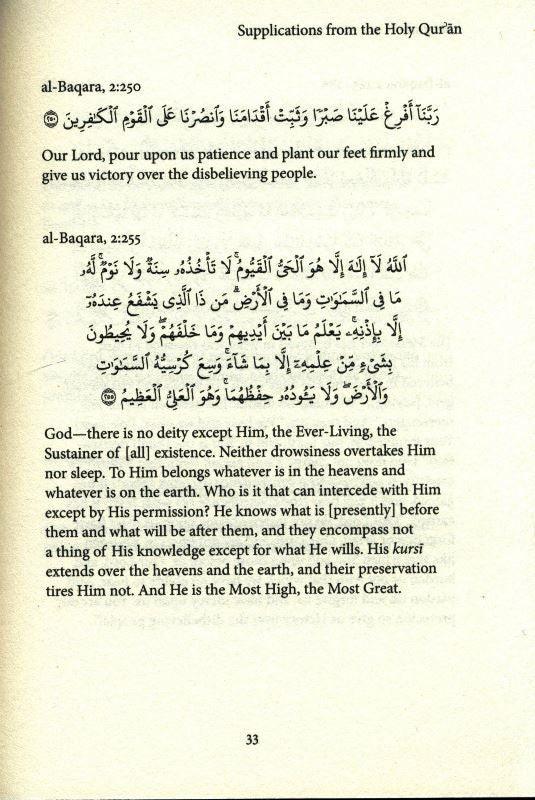 Supplications from the Holy Qurʾān
al-Baqara, 2:250
رَبَّنَآ أَفْرِغْ عَلَيْنَا صَبْرًا وَثَبِّتْ أَقْدَامَنَا وَٱنصُرْنَا عَلَى ٱلْقَوْمِ ٱلْكَٰفِرِينَ ﴿٢٥٠﴾
Our Lord, pour upon us patience and plant our feet firmly and
give us victory over the disbelieving people.
al-Baqara, 2:255
ٱللَّهُ لَآ إِلَٰهَ إِلَّا هُوَ ٱلْحَىُّ ٱلْقَيُّومُ ۚ لَا تَأْخُذُهُۥ سِنَةٌ وَلَا نَوْمٌ ۚ لَّهُۥ
مَا فِى ٱلسَّمَٰوَٰتِ وَمَا فِى ٱلْأَرْضِ ۗ مَن ذَا ٱلَّذِى يَشْفَعُ عِندَهُۥٓ
إِلَّا بِإِذْنِهِۦ ۚ يَعْلَمُ مَا بَيْنَ أَيْدِيهِمْ وَمَا خَلْفَهُمْ ۖ وَلَا يُحِيطُونَ
بِشَىْءٍ مِّنْ عِلْمِهِۦٓ إِلَّا بِمَا شَآءَ ۚ وَسِعَ كُرْسِيُّهُ ٱلسَّمَٰوَٰتِ
وَٱلْأَرْضَ ۖ وَلَا يَـُٔودُهُۥ حِفْظُهُمَا ۚ وَهُوَ ٱلْعَلِىُّ ٱلْعَظِيمُ ﴿٢٥٥﴾
God—there is no deity except Him, the Ever-Living, the
Sustainer of [all] existence. Neither drowsiness overtakes Him
nor sleep. To Him belongs whatever is in the heavens and
whatever is on the earth. Who is it that can intercede with Him
except by His permission? He knows what is [presently] before
them and what will be after them, and they encompass not
a thing of His knowledge except for what He wills. His kursī
extends over the heavens and the earth, and their preservation
tires Him not. And He is the Most High, the Most Great.
33